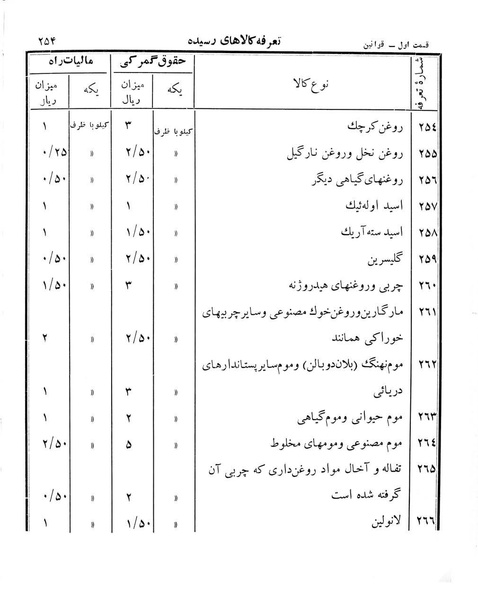 قسمت اول — قوانین تعرفه کالاهای رسیده ۲۵۴
شمارهٔ تعرفه نوع کالا حقوق گمرکی مالیات راه
میزان ریال یکه میزان ریال یکه
۲۵۴ روغن کرچک ۳ کیلو با ظرف ۱ کیلو با ظرف
۲۵۵ روغن نخل و روغن نارگیل ۲/۵۰ » ۰/۲۵ »
۲۵۶ روغنهای گیاهی دیگر ۲/۵۰ » ۰/۵۰ »
۲۵۷ اسید اوله‌ئیک ۱ » ۱ »
۲۵۸ اسید سته‌آریک ۱/۵۰ » ۱ »
۲۵۹ گلیسرین ۲/۵۰ » ۰/۵۰ »
۲۶۰ چربی و روغنهای هیدروژنه ۳ » ۱/۵۰ »
۲۶۱ مارگارین و روغن خوک مصنوعی و سایر چربیهای
خوراکی همانند ۲/۵۰ » ۲ »
۲۶۲ موم نهنگ (بلان دو بالن) و موم سایر پستاندارهای
دریائی ۳ » ۱ »
۲۶۳ موم حیوانی و موم گیاهی ۲ » ۱ »
۲۶۴ موم مصنوعی و مومهای مخلوط ۵ » ۲/۵۰ »
۲۶۵ تفاله و آخال مواد روغن‌داری که چربی آن
گرفته شده است ۲ » ۰/۵۰ »
۲۶۶ لانولین ۱/۵۰ » ۱ »